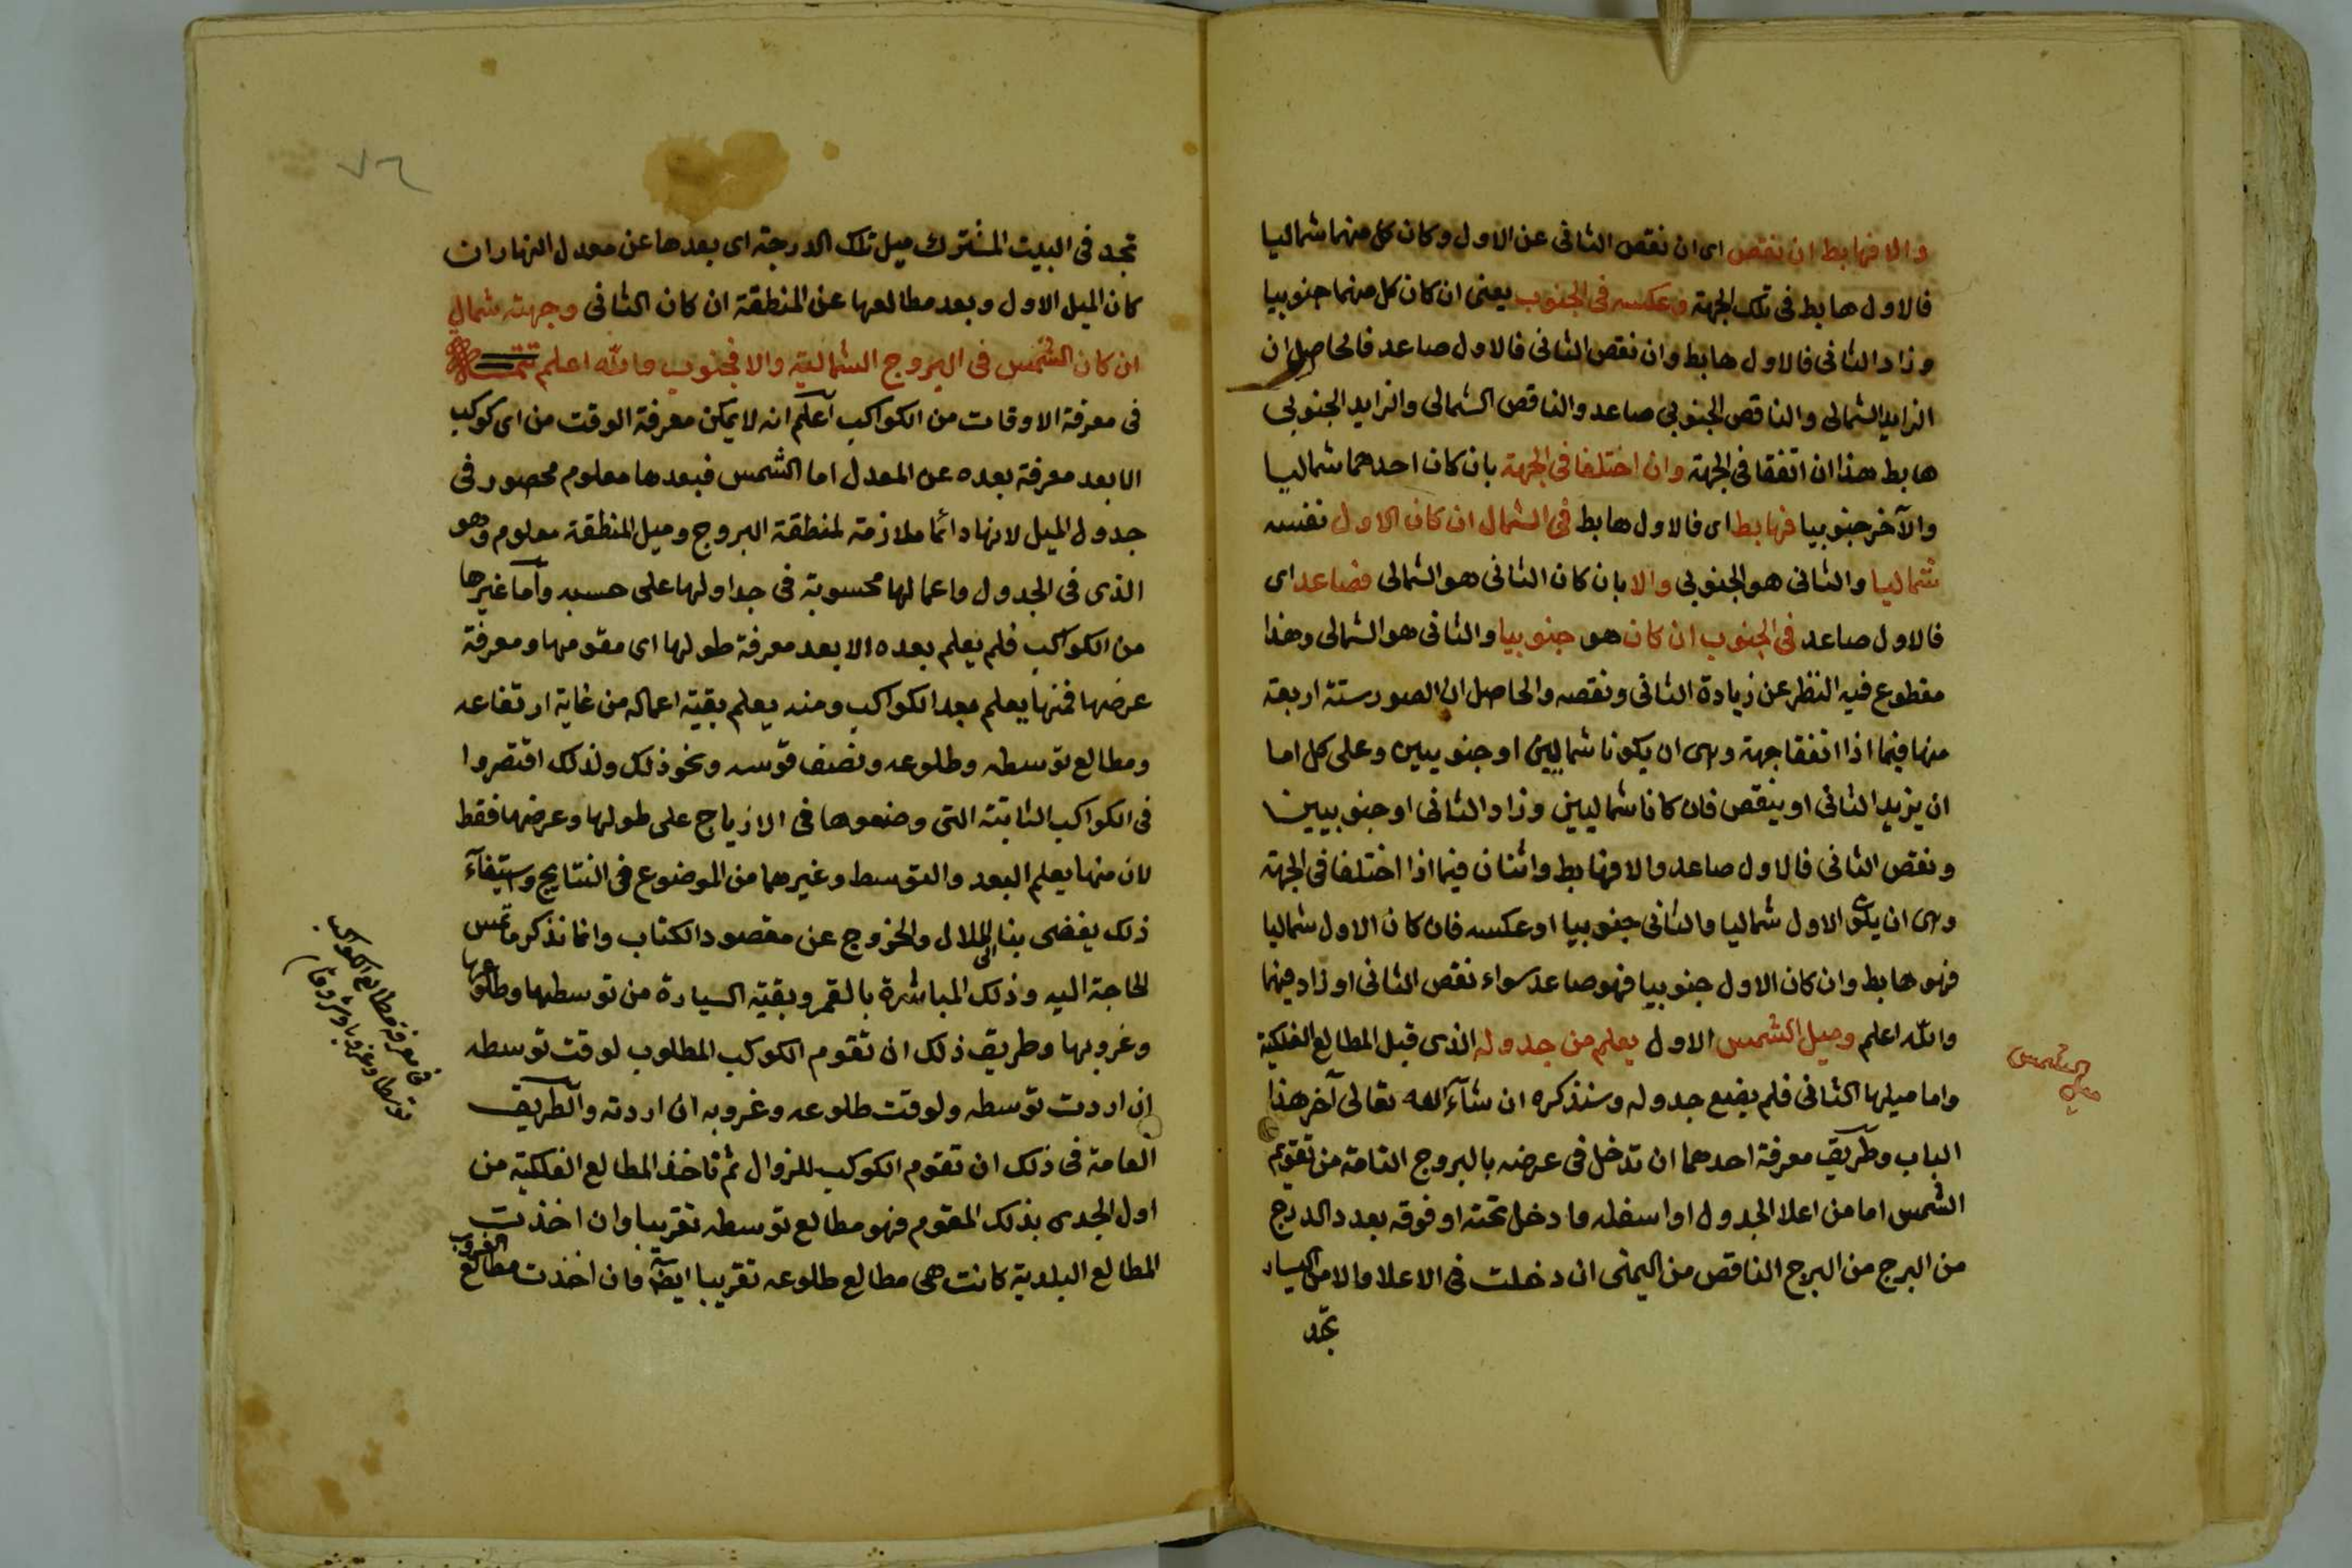 والا فهابط ان نقص اى ان نقص الثانى عن الاول وكان كل منهما شماليا
فالاول هابط فى تلك الجهة وعكسه فى الجنوب يعنى ان كان كل منهما جنوبيا
وزاد الثانى فالاول هابط وان نقص الثانى فالاول صاعد فالحاصل ان
الزايد الشمالى والناقص الجنوبى صاعد والناقص الشمالى والزايد الجنوبى
هابط هذا ان اتفقا فى الجهة وان اختلفا فى الجهة بان كان احدهما شماليا
والآخر جنوبيا فهابط اى فالاول هابط فى الشمال ان كان الاول نفسه
شماليا والثانى هو الجنوبى والا بان كان الثانى هو الشمالى فصاعد اى
فالاول صاعد فى الجنوب ان كان هو جنوبيا والثانى هو الشمالى وهذا
مقطوع فيه النظر عن زيادة الثانى ونقصه والحاصل ان الصور ستة اربعة
منها فيما اذا اتفقا جهة وهى ان يكونا شماليين او جنوبيين وعلى كل اما
ان يزيد الثانى او ينقص فان كانا شماليين وزاد الثانى او جنوبيين
ونقص الثانى فالاول صاعد والا فهابط واثنان فيما اذا اختلفا فى الجهة
وهى ان يكون الاول شماليا والثانى جنوبيا او عكسه فان كان الاول شماليا
فهو هابط وان كان الاول جنوبيا فهو صاعد سواء نقص الثانى او زاد فيهما
والله اعلم وميل الشمس الاول يعلم من جدوله الذى قبل المطالع الفلكية
واما ميلها الثانى فلم يضع جدوله وسنذكره ان شآء الله تعالى آخر هذا
الباب وطريق معرفة احدهما ان تدخل فى عرضه بالبروج التامة من تقويم
الشمس اما من اعلا الجدول او اسفله وما دخل تحته او فوقه بعدد الدرج
من البرج من البرج الناقص من اليمنى ان دخلت فى الاعلا والا من اليسار
تجد
ميل الشمس
٧٦
تجد فى البيت المشترك ميل تلك الدرجة اى بعدها عن معدل النهار ان
كان الميل الاول وبعد مطالعها عن المنطقة ان كان الثانى وجهته شمال
ان كان الشمس فى البروج الشمالية والا فجنوب والله اعلم تتمة
فى معرفة الاوقات من الكواكب اعلم انه لا يمكن معرفة الوقت من اى كوكب
الا بعد معرفة بعده عن المعدل اما الشمس فبعدها معلوم محصور فى
جدول الميل لانها دائما ملازمة لمنطقة البروج وميل المنطقة معلوم وهو
الذى فى الجدول واعمالها محسوبة فى جداولها على حسبه وأما غيرها
من الكواكب فلم يعلم بعده الا بعد معرفة طولها اى مقومها ومعرفة
عرضها فمنها يعلم بعد الكواكب ومنه يعلم بقية اعماله من غاية ارتفاعه
ومطالع توسطه وطلوعه ونصف قوسه ونحو ذلك ولذلك اقتصروا
فى الكواكب الثابتة التى وضعوها فى الازياج على طولها وعرضها فقط
لان منها يعلم البعد والتوسط وغيرهما من الموضوع فى النتايج واستيفآء
ذلك يفضى بنا الى الملال والخروج عن مقصود الكتاب وانما نذكر ما تمس
الحاجة اليه وذلك المباشرة بالقمر وبقية السيارة من توسطها وطلوعها
وغروبها وطريق ذلك ان تقوم الكوكب المطلوب لوقت توسطه
ان اردت توسطه ولوقت طلوعه وغروبه ان اردته والطريق
العامة فى ذلك ان تقوم الكوكب للزوال ثم تاخذ المطالع الفلكية من
اول الجدى بذلك المقوم فهو مطالع توسطه تقريبا وان اخذت
المطالع البلدية كانت هى مطالع طلوعه تقريبا ايضآ فان اخذت مطالع الغروب
فى معرفة مطالع الكواكب
توسطا وغروبا وشروقا